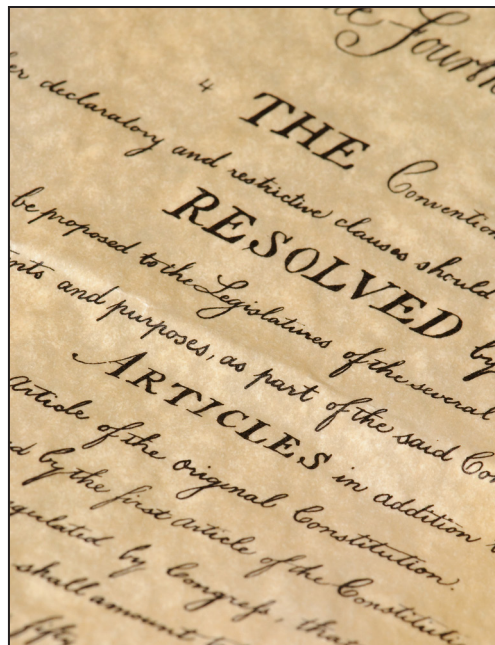 the Fourth
THE Convention
er declaratory and restrictive clauses should
RESOLVED by
be proposed to the Legislatures of the several
nts and purposes, as part of the said Con
ARTICLES in addition
Article of the original Constitution.
d by the first article of the Constituti
egulated by Congress, that
shall amount
fifty